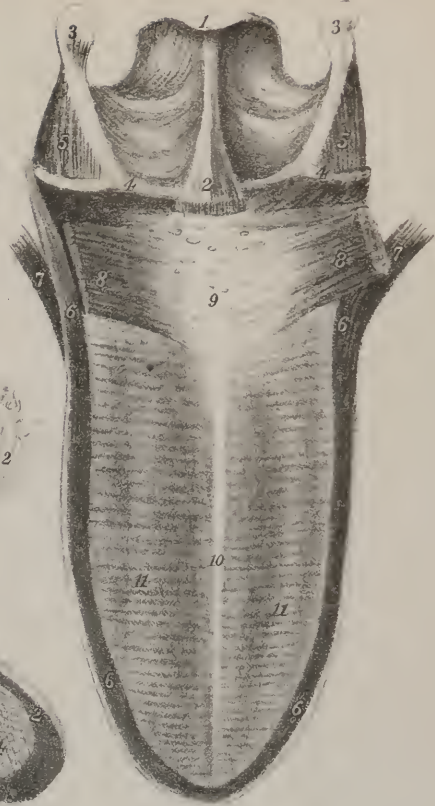 1
3 3
5 5
4 2 4
7 8 8 7
9
6 6
2
10
11 11
6 6
2